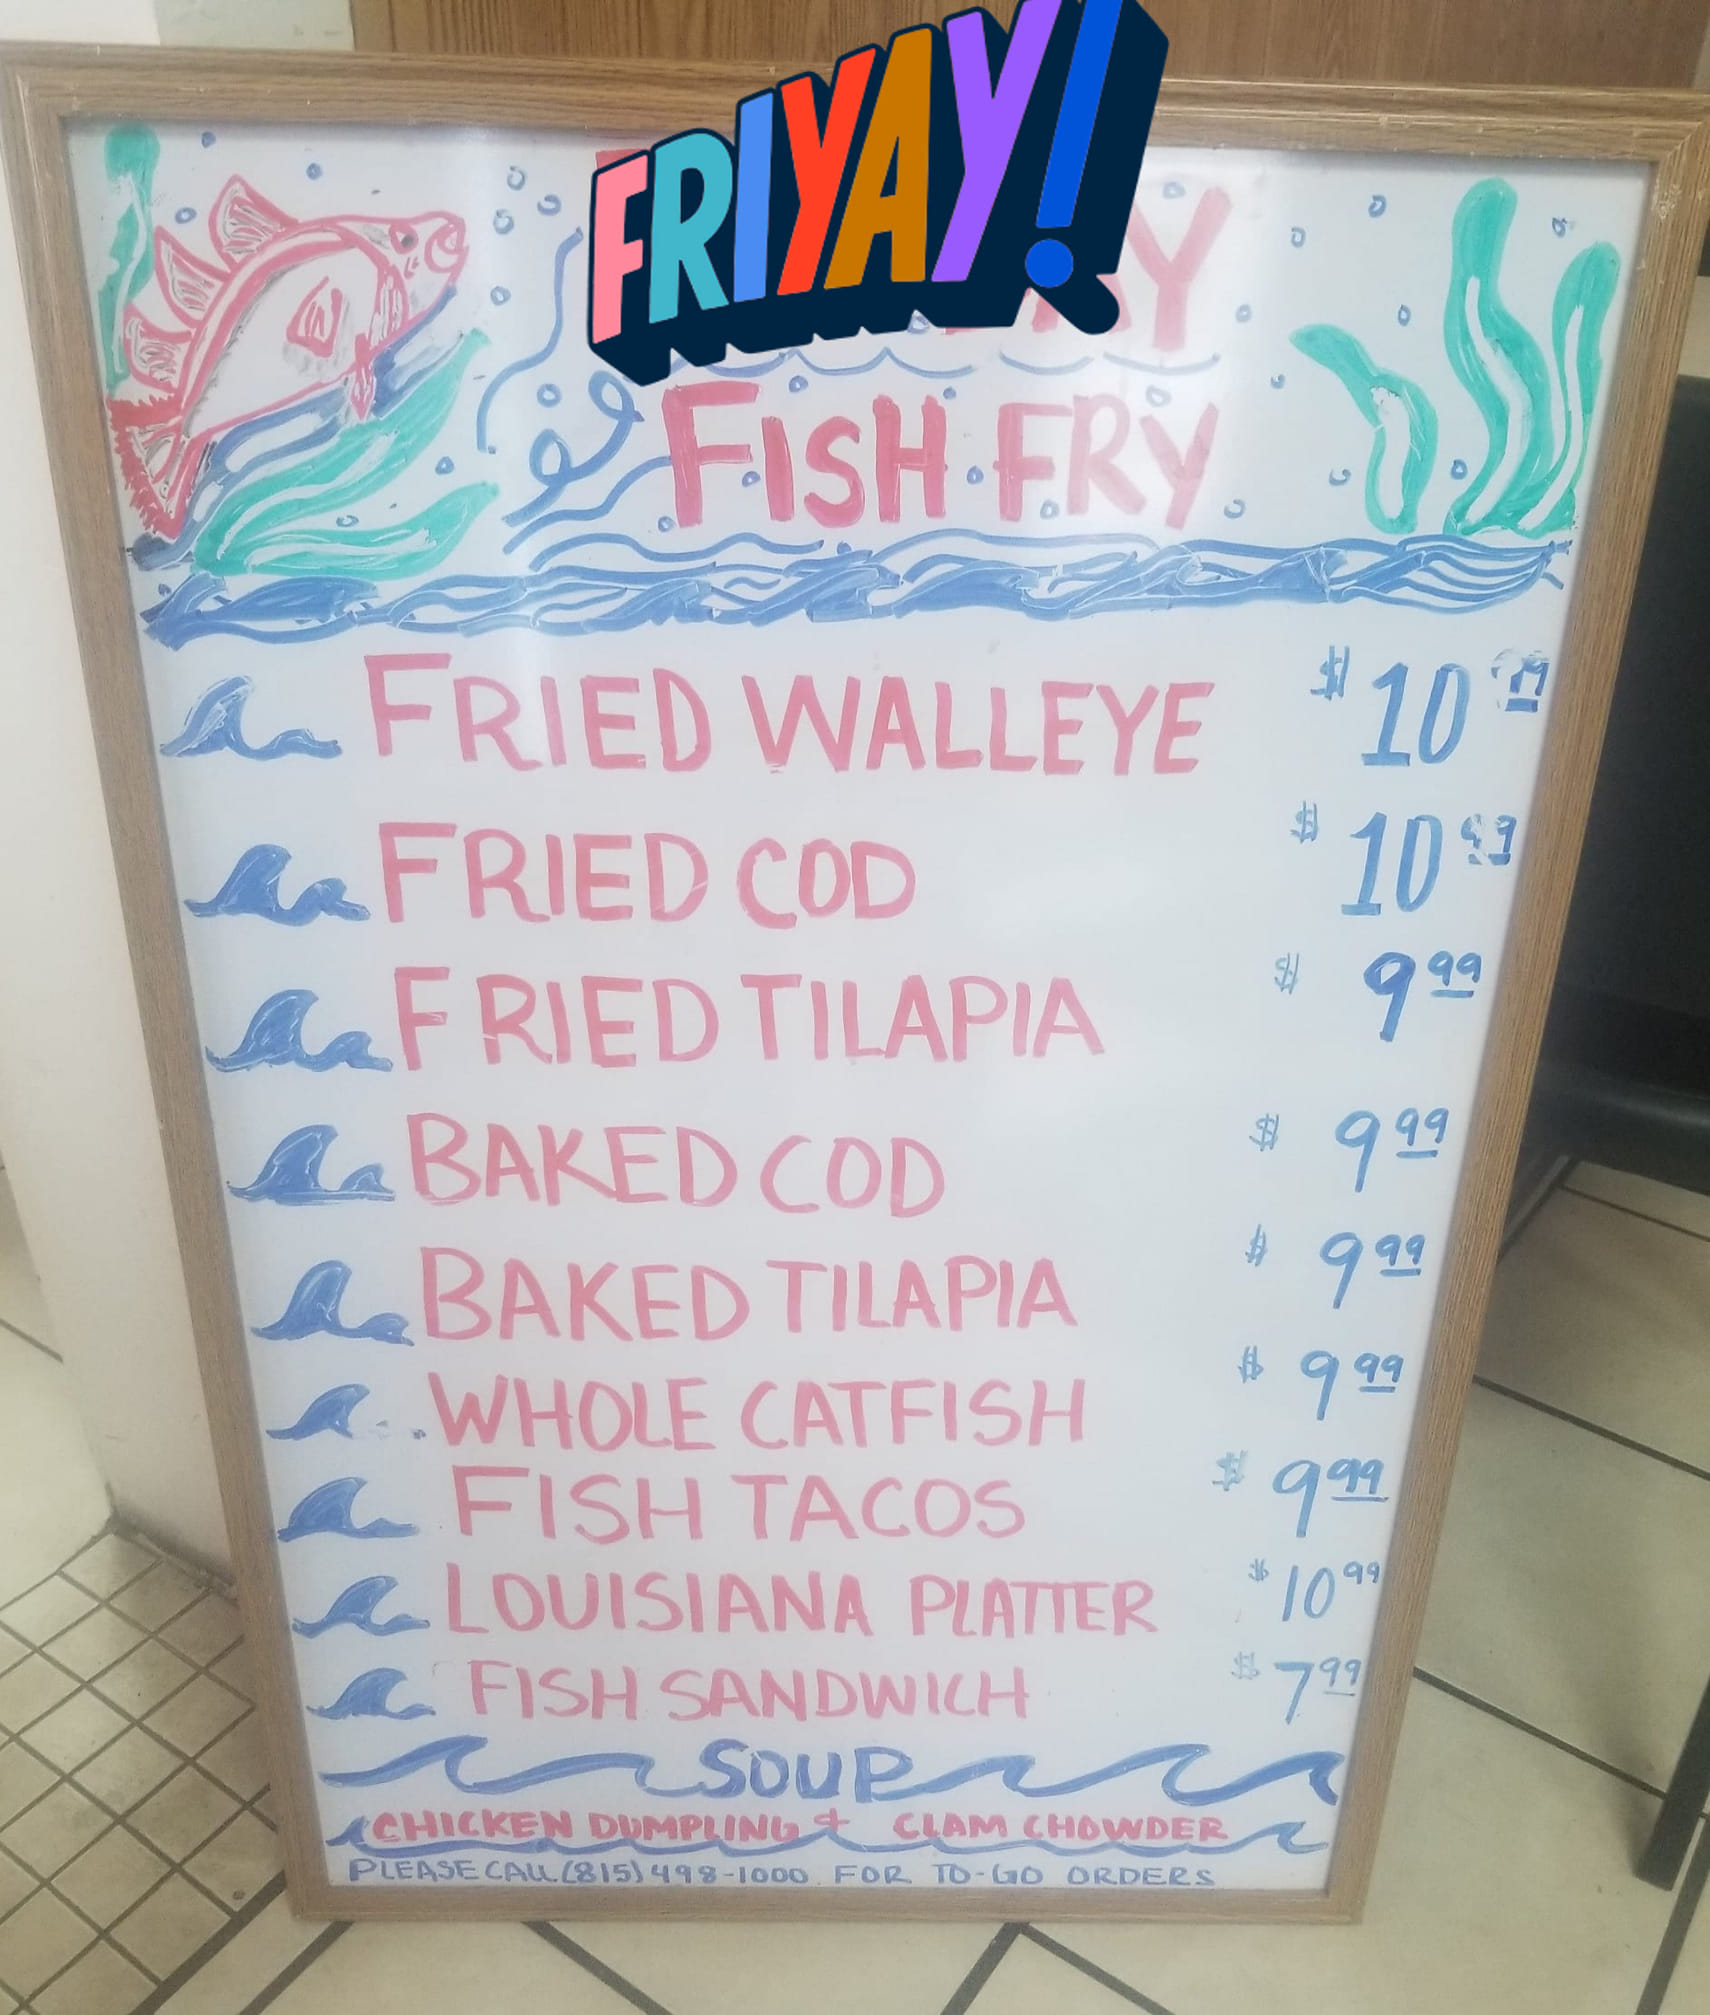 FRIYAY!
FISH FRY
FRIED WALLEYE $10
FRIED COD $10 99
FRIED TILAPIA $9 99
BAKED COD $9 99
BAKED TILAPIA $9 99
WHOLE CATFISH $9 99
FISH TACOS $9 99
LOUISIANA PLATTER $10 99
FISH SANDWICH $7 99
SOUP
CHICKEN DUMPLING & CLAM CHOWDER
PLEASE CALL (815) 498-1000 FOR TO-GO ORDERS